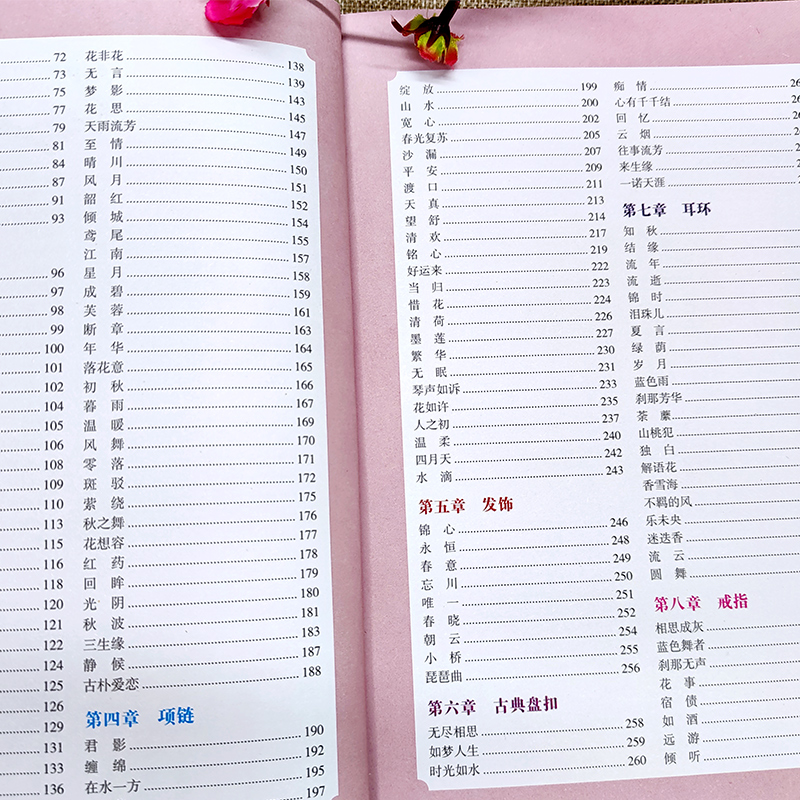 72
73
75
77
79
81
84
87
91
93
96
97
98
99
100
101
102
104
105
106
108
109
110
113
115
116
118
120
121
122
124
125
126
129
131
136
花非花 138
无言 139
梦影 143
花思 145
天雨流芳 147
至情 149
晴川 150
风月 151
韶红 152
倾城 154
鸢尾 155
江南 157
星月 158
成碧 159
芙蓉 161
断章 163
年华 164
落花意 165
初秋 166
暮雨 167
温暖 169
风舞 170
零落 171
斑驳 172
萦绕 175
秋之舞 176
花想容 177
红药 178
回眸 179
光阴 180
秋波 181
三生缘 183
静候 187
古朴爱恋 188
第四章 项链
君影 190
缠绵 192
在水一方 195
197
绽放 199
山水 200
宽心 202
春光复苏 205
沙漏 207
平安 209
渡口 211
天真 213
望舒 214
清欢 217
铭心 219
好运来 222
当归 223
惜花 224
清荷 226
墨莲 227
繁华 230
无眠 231
琴声如诉 233
花如许 235
人之初 237
温柔 240
四月天 242
水滴 243
第五章 发饰
锦心 246
永恒 248
春意 249
忘川 250
唯一 251
春晓 252
朝云 254
小桥 255
琵琶曲 256
第六章 古典盘扣
无尽相思 258
如梦人生 259
时光如水 260
痴情
心有千千结
回忆
云烟
往事流芳
来生缘
一诺天涯
第七章 耳环
知秋
结缘
流年
流逝
锦时
泪珠儿
夏言
绿荫
岁月
蓝色雨
刹那芳华
荼蘼
山桃犯
独白
解语花
香雪海
不羁的风
乐未央
迷迭香
流云
圆舞
第八章 戒指
相思成灰
蓝色舞者
刹那无声
花事
宿债
如酒
远游
倾听